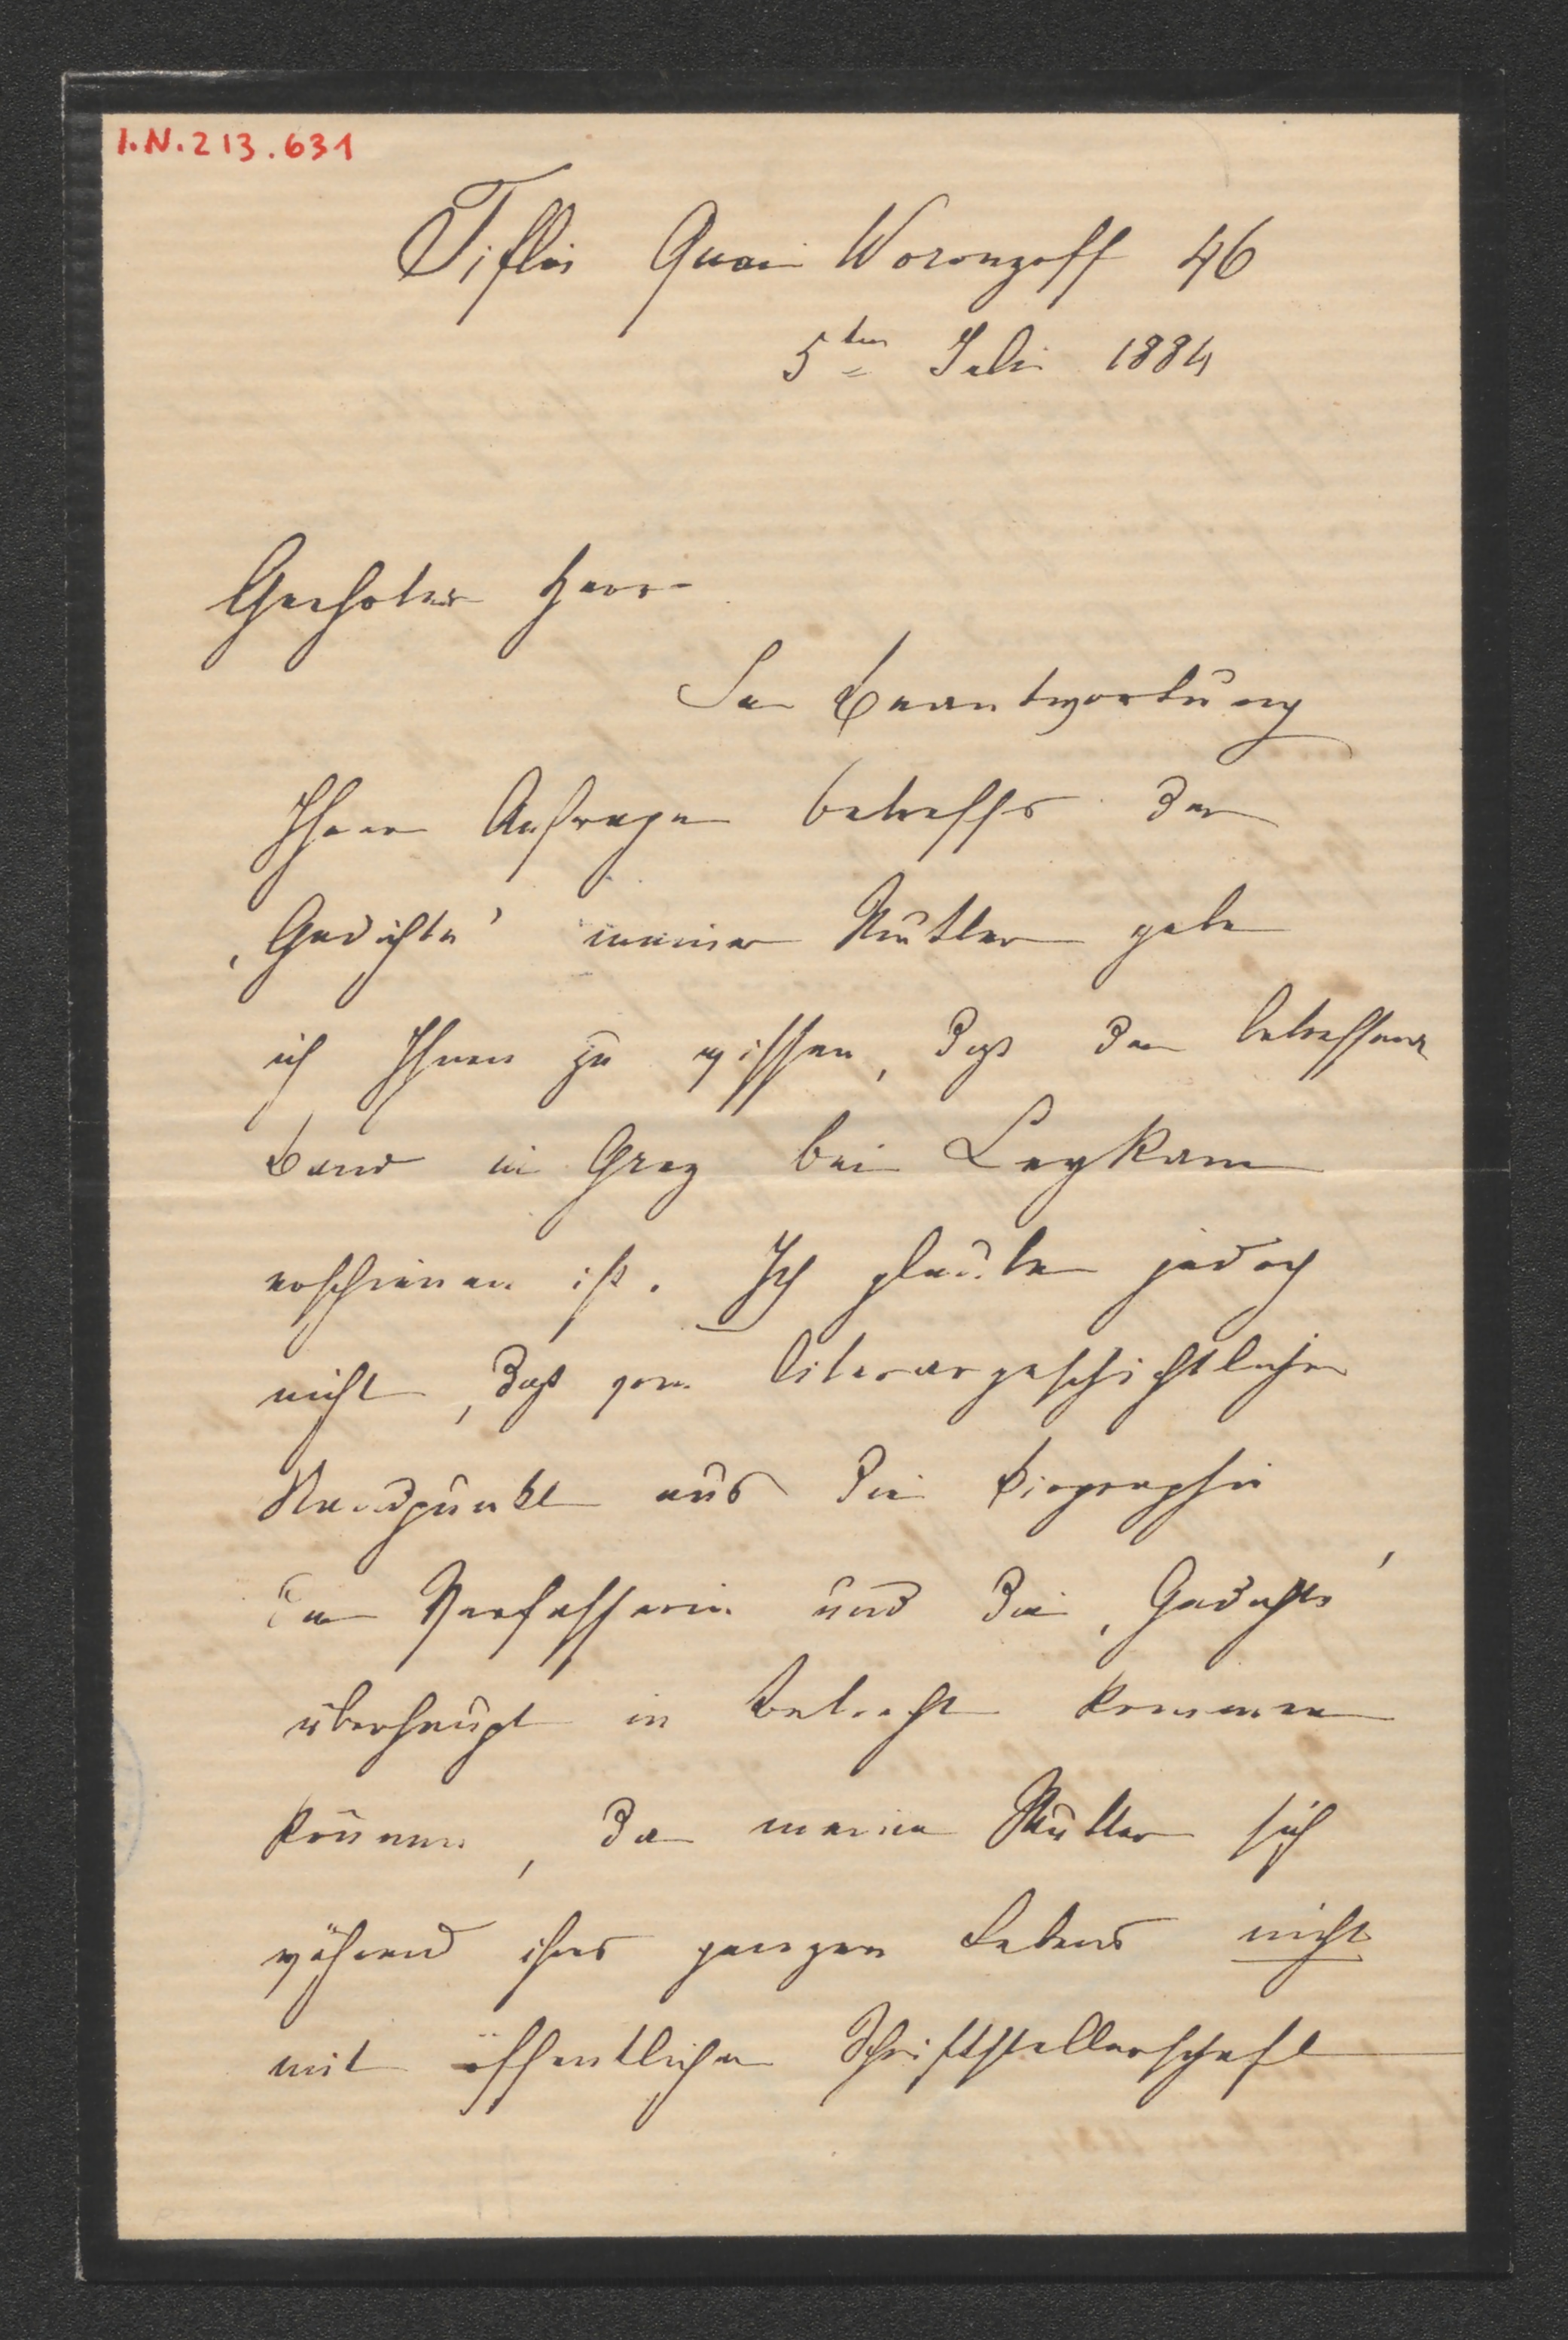 I.N.213.631
Tiflis Quai Woronzoff 46
5ten Juli 1884
Geehrter Herr
In Beantwortung
Ihrer Anfrage betreffs der
‚Gedichte' meiner Mutter gebe
ich Ihnen zu wissen, daß der betreffende
Band in Graz bei Leykam
erschienen ist. Ich glaube jedoch
nicht, daß vom literargeschichtlichen
Standpunkte aus die Biographie
der Verfasserin und die ‚Gedichte'
überhaupt in Betracht kommen
können, da meine Mutter sich
während ihres ganzen Lebens nicht
mit öffentlicher Schriftstellerschaft